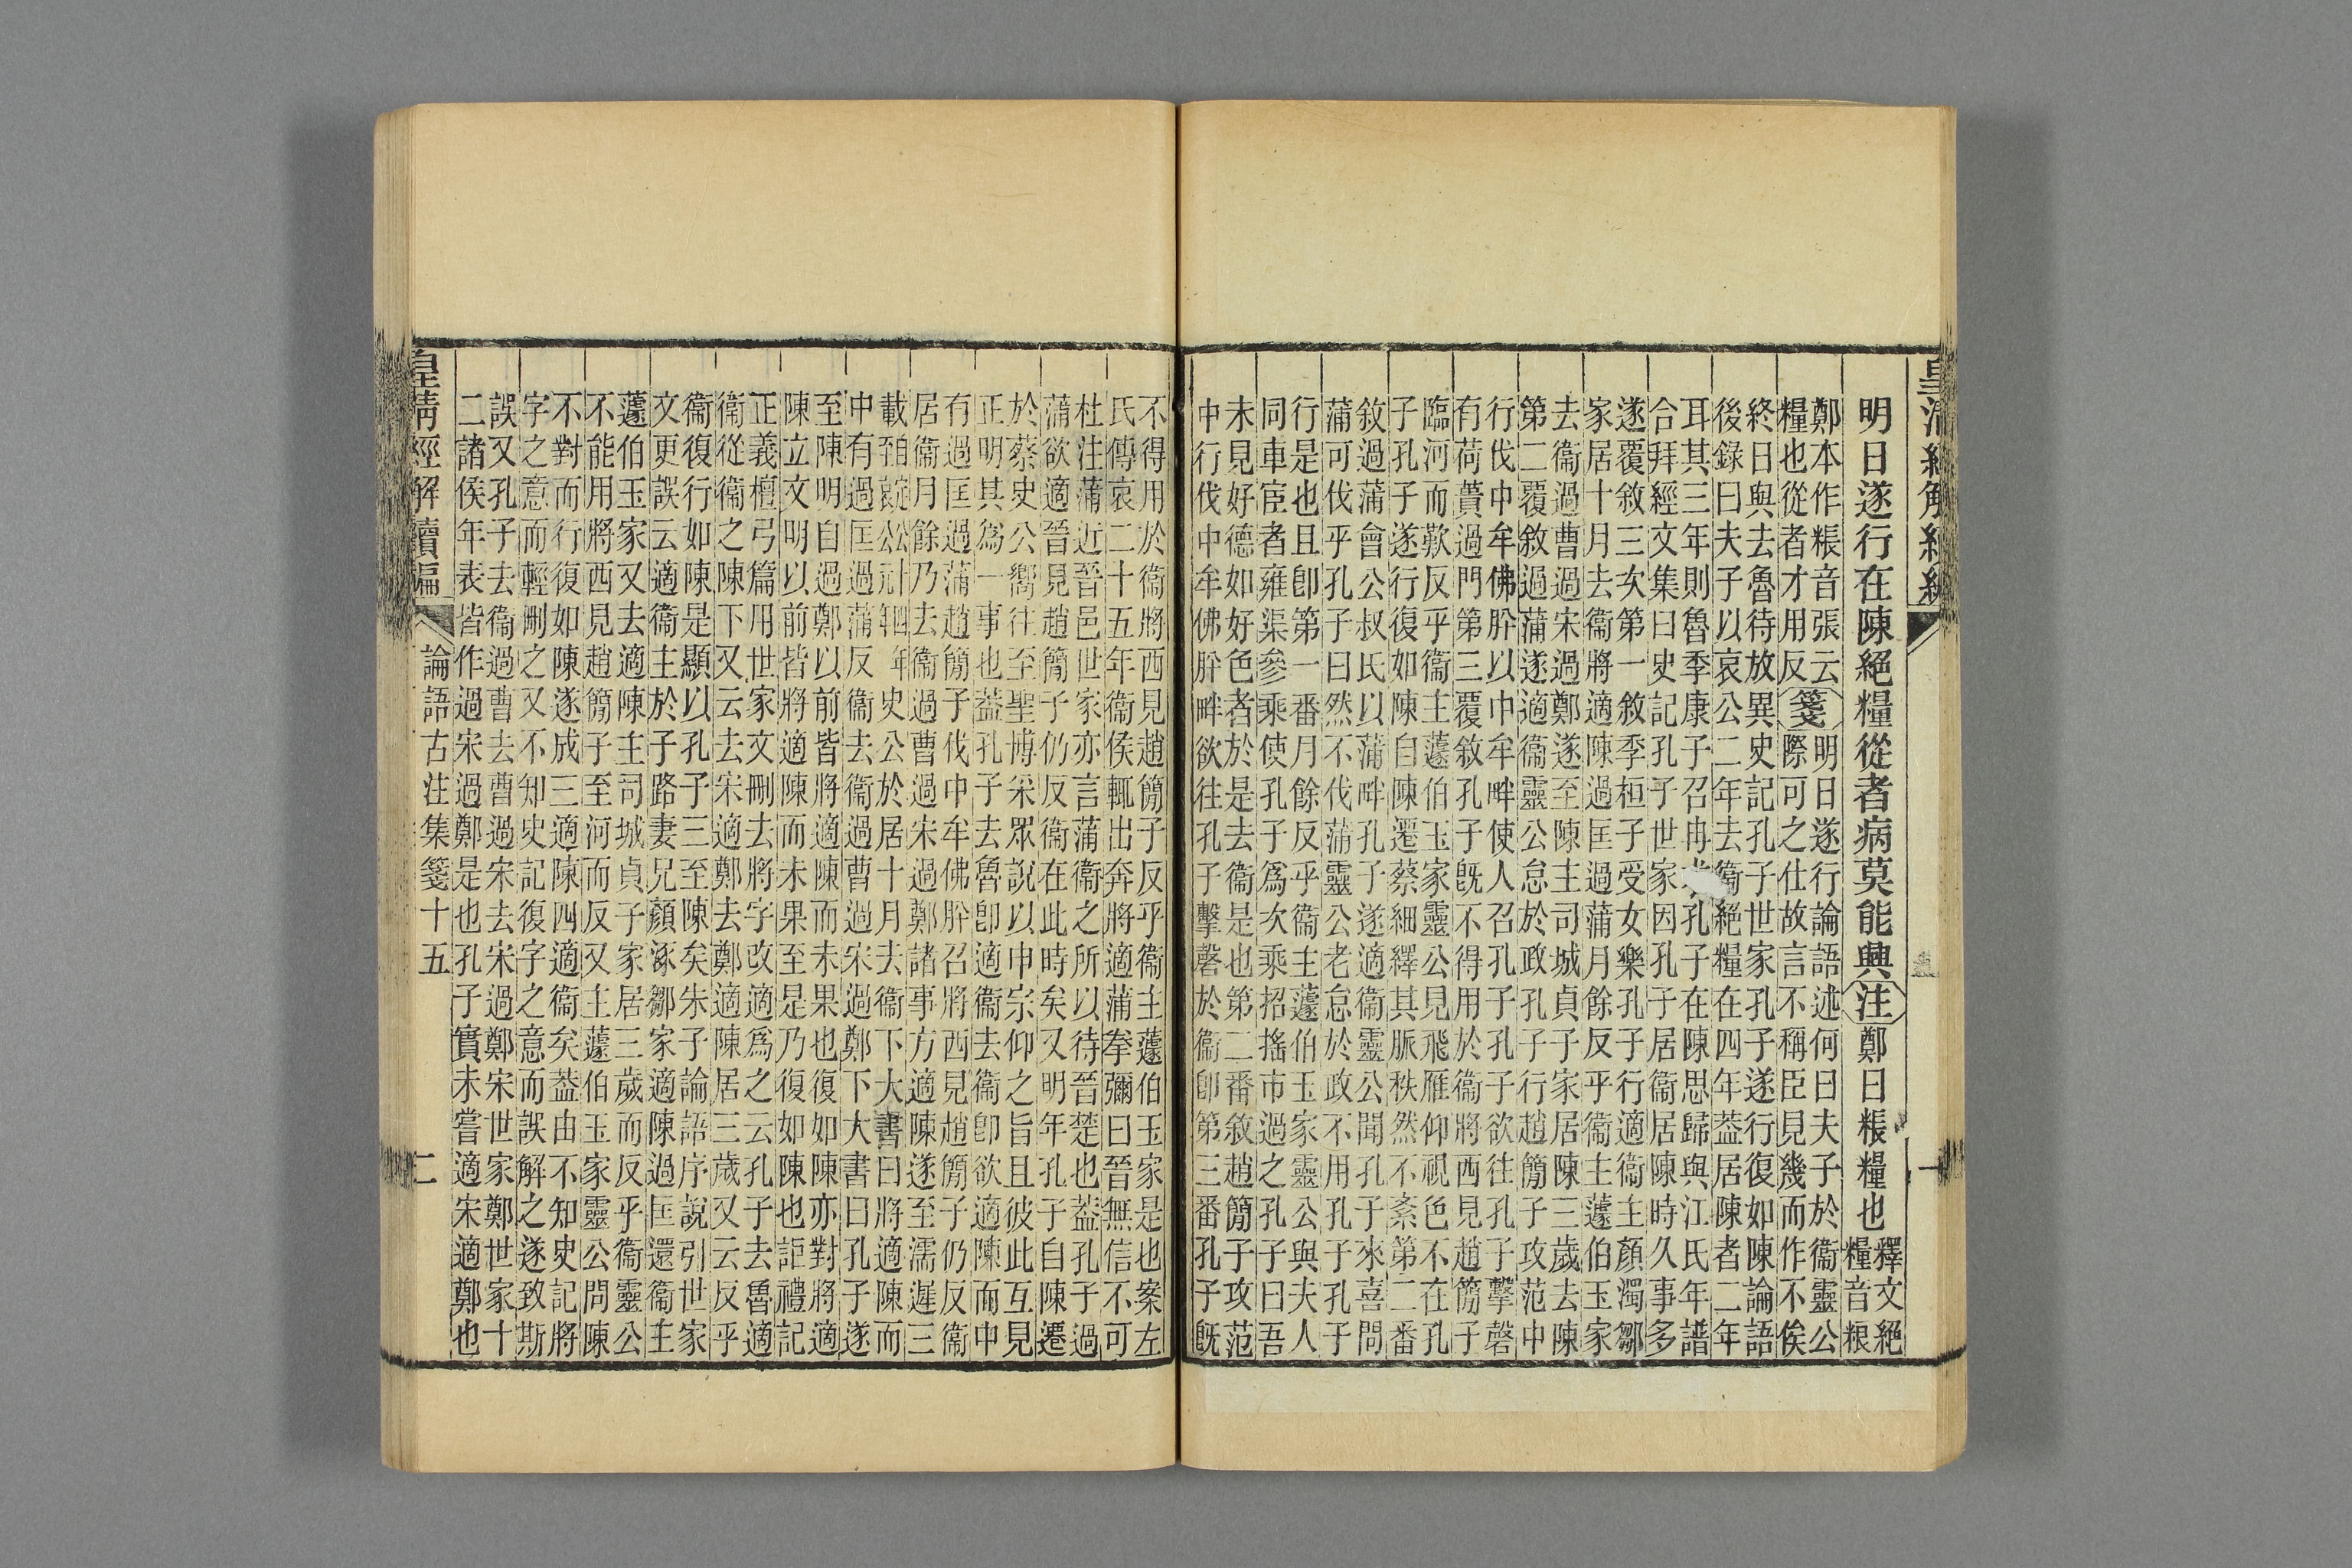 皇清經解續編
一
明日遂行在陳絕糧從者病莫能興注鄭曰粻糧也釋文絕
糧音粮
鄭本作粻音張云
糧也從者才用反箋
明日遂行論語述何曰夫子於衞靈公
際可之仕故言不稱臣見幾而作不俟
終日與去魯待放異史記孔子世家孔子遂行復如陳論語
後錄曰夫子以哀公二年去衞絕糧在四年蓋居陳者二年
耳其三年則魯季康子召冉孔子在陳思歸與江氏年譜
合拜經文集曰史記孔子世家因孔子居衞居陳時久事多
遂覆敘三次第一敘季桓子受女樂孔子行適衞主顏濁鄒
家居十月去衞將適陳過匡過蒲月餘反乎衞主蘧伯玉家
去衞過曹過宋過鄭遂至陳主司城貞子家居陳三歲去陳
第二覆敘過蒲遂適衞靈公怠於政孔子行趙簡子攻范中
行伐中牟佛肸以中牟畔使人召孔子孔子欲往孔子擊磬
有荷蕢過門第三覆敘孔子既不得用於衞將西見趙簡子
臨河而歎反乎衞主蘧伯玉家靈公見飛雁仰視色不在孔
子孔子遂行復如陳自陳遷蔡細繹其脈秩然不紊第二番
敘過蒲會公叔氏以蒲畔孔子遂適衞靈公聞孔子來喜問
蒲可伐乎孔子曰然不伐蒲靈公老怠於政不用孔子孔子
行是也且卽第一番月餘反乎衞主蘧伯玉家靈公與夫人
同車宦者雍渠參乘使孔子爲次乘招搖市過之孔子曰吾
未見好德如好色者於是去衞是也第二番敘趙簡子攻范
中行伐中牟佛肸畔欲往孔子擊磬於衞卽第三番孔子既
不得用於衞將西見趙簡子反乎衞主蘧伯玉家是也案左
氏傳哀二十五年衞侯輒出奔將適蒲拳彌曰晉無信不可
杜注蒲近晉邑世家亦言蒲衞之所以待晉楚也蓋孔子過
蒲欲適晉見趙簡子仍反衞在此時矣又明年孔子自陳遷
於蔡史公嚮往至聖博采眾說以申宗仰之旨且彼此互見
正明其爲一事也蓋孔子去魯卽適衞去衞卽欲適陳而中
有過匡過蒲趙簡子伐中牟佛肸召將西見趙簡子仍反衞
居衞月餘乃去衞過曹過宋過鄭諸事方適陳遂至濡遲三
載年史公於居十月去衞下大書曰將適陳而
中有過匡過蒲反衞去衞過曹過宋過鄭下大書曰孔子遂
至陳明自過鄭以前皆將適陳而未果也復如陳亦對將適
陳立文明以前皆將適陳而未果至是乃復如陳也詎禮記
正義檀弓篇用世家文刪去將字改適爲之云孔子去魯適
衞從衞之陳下又云去宋適鄭去鄭適陳居三歲又云反乎
衞復行如陳是顯以孔子三至陳矣朱子論語序說引世家
文更誤云適衞主於子路妻兄顏涿鄒家適陳過匡還衞主
蘧伯玉家又去適陳主司城貞子家居三歲而反乎衞靈公
不能用將西見趙簡子至河而反又主蘧伯玉家靈公問陳
不對而行復如陳遂成三適陳四適衞矣蓋由不知史記將
字之意而輕刪之又不知史記復字之意而誤解之遂致斯
誤又孔子去衞過曹去曹過宋去宋過鄭宋世家鄭世家十
二諸侯年表皆作過宋過鄭是也孔子實未嘗適宋適鄭也
皇清經解續編
論語古注集箋十五
二